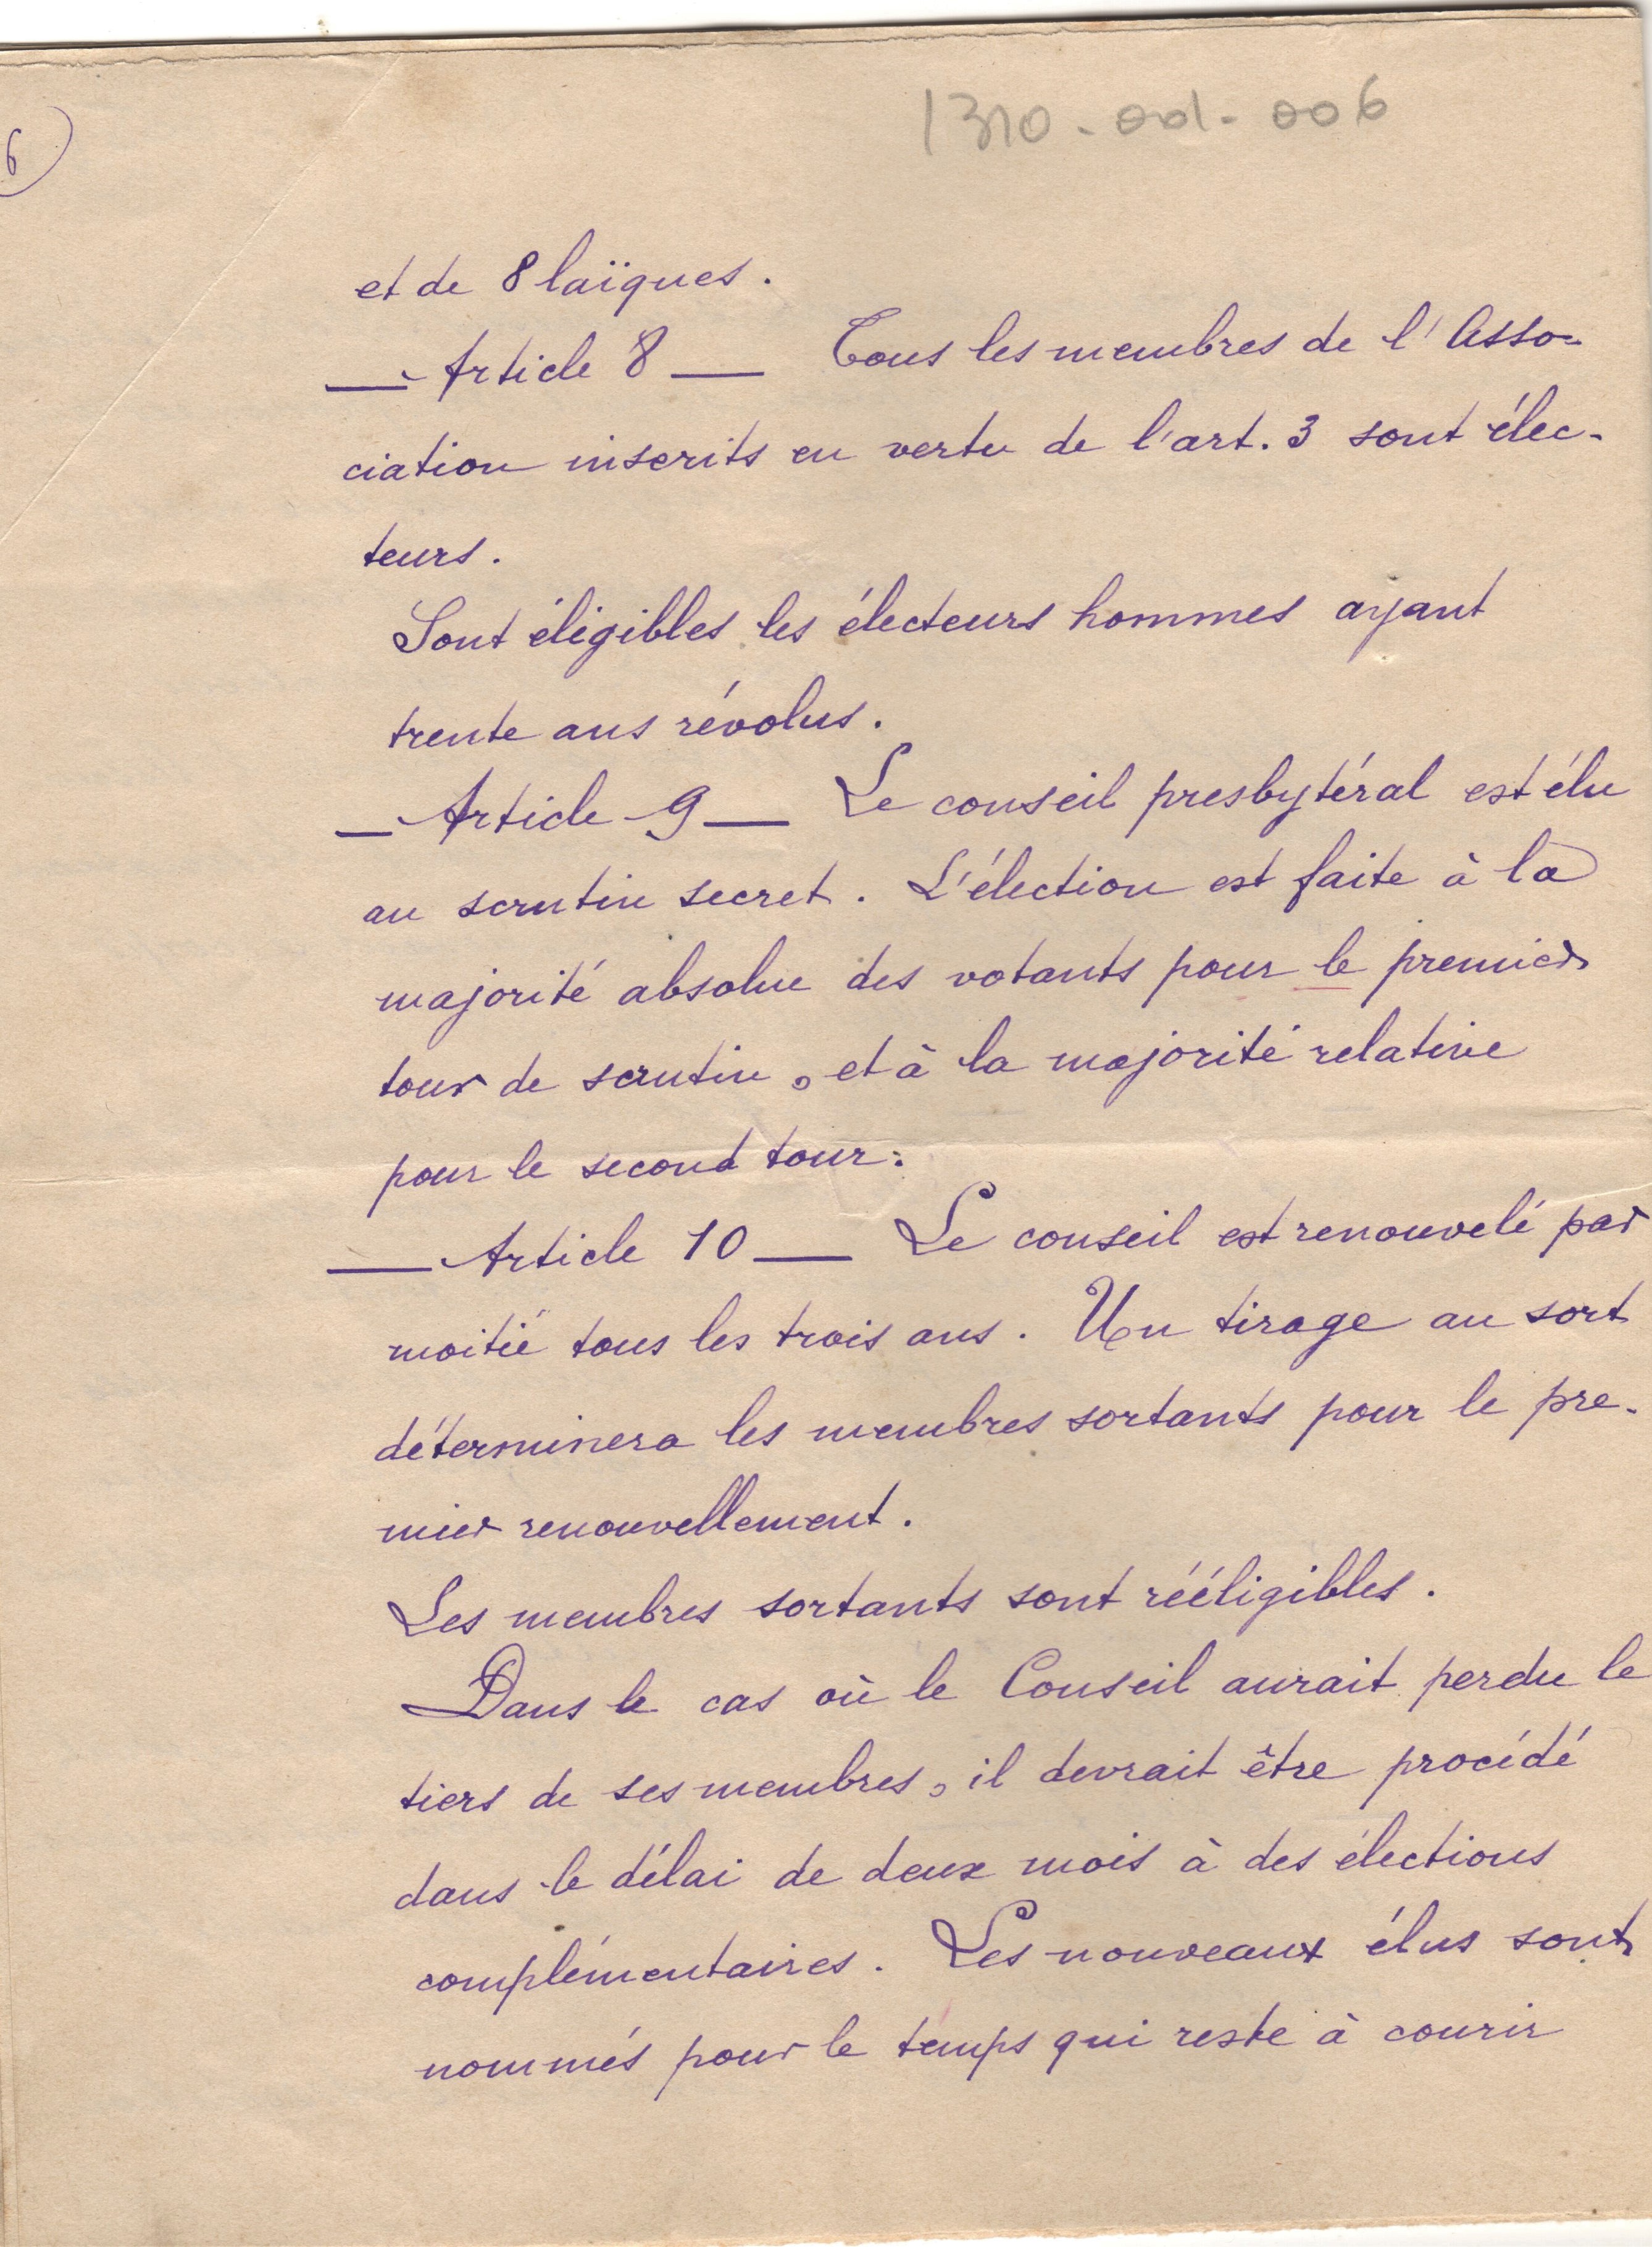 1310-001-006
6)
et de 8 laïques.
— Article 8 — Tous les membres de l'Asso-
ciation inscrits en vertu de l'art. 3 sont élec-
teurs.
Sont éligibles les électeurs hommes ayant
trente ans révolus.
— Article 9 — Le conseil presbytéral est élu
au scrutin secret. L'élection est faite à la
majorité absolue des votants pour le premier
tour de scrutin, et à la majorité relative
pour le second tour.
— Article 10 — Le conseil est renouvelé par
moitié tous les trois ans. Un tirage au sort
déterminera les membres sortants pour le pre-
mier renouvellement.
Les membres sortants sont rééligibles.
Dans le cas où le Conseil aurait perdu le
tiers de ses membres, il devrait être procédé
dans le délai de deux mois à des élections
complémentaires. Les nouveaux élus sont
nommés pour le temps qui reste à courir